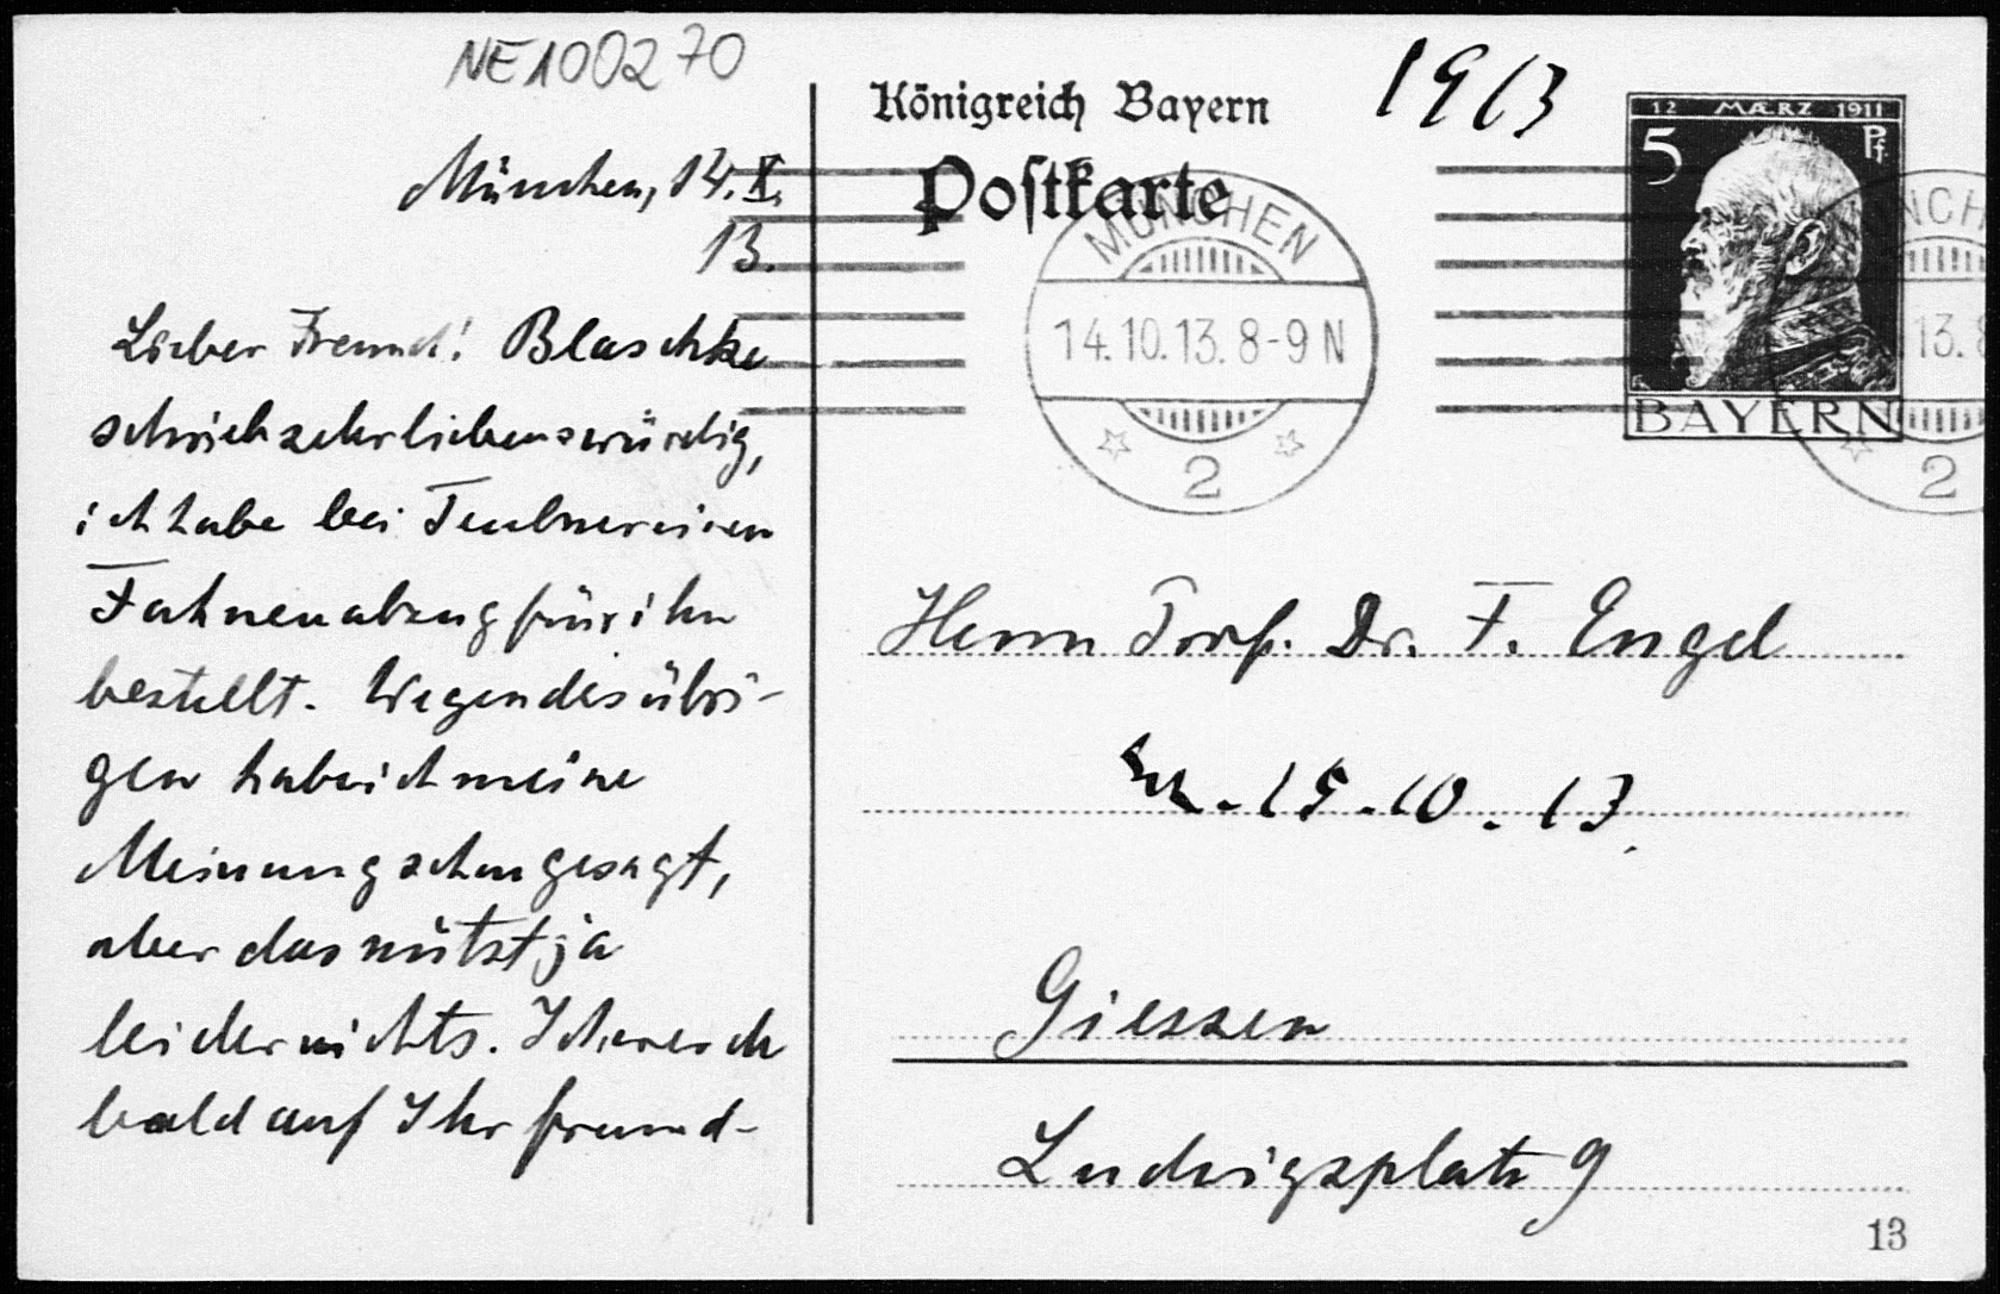 NE100270
München, 14. X.
13.
Lieber Freund! Blaschke
schrieb sehr liebenswürdig,
ich habe bei Teubner einen
Fahnenabzug für ihn
bestellt. Wegen des übri-
gen habe ich meine
Meinung schon gesagt,
aber das nützt ja
leider nichts. Ich werde
bald auf Ihr freund-
Königreich Bayern
1913
Postkarte
12 MÆRZ 1911
5 Pf.
BAYERN
MÜNCHEN
14.10.13. 8-9 N
2
NCH
13. 8
2
Herrn Prof. Dr. F. Engel
15.10.13.
Giessen
Ludwigsplatz 9
13